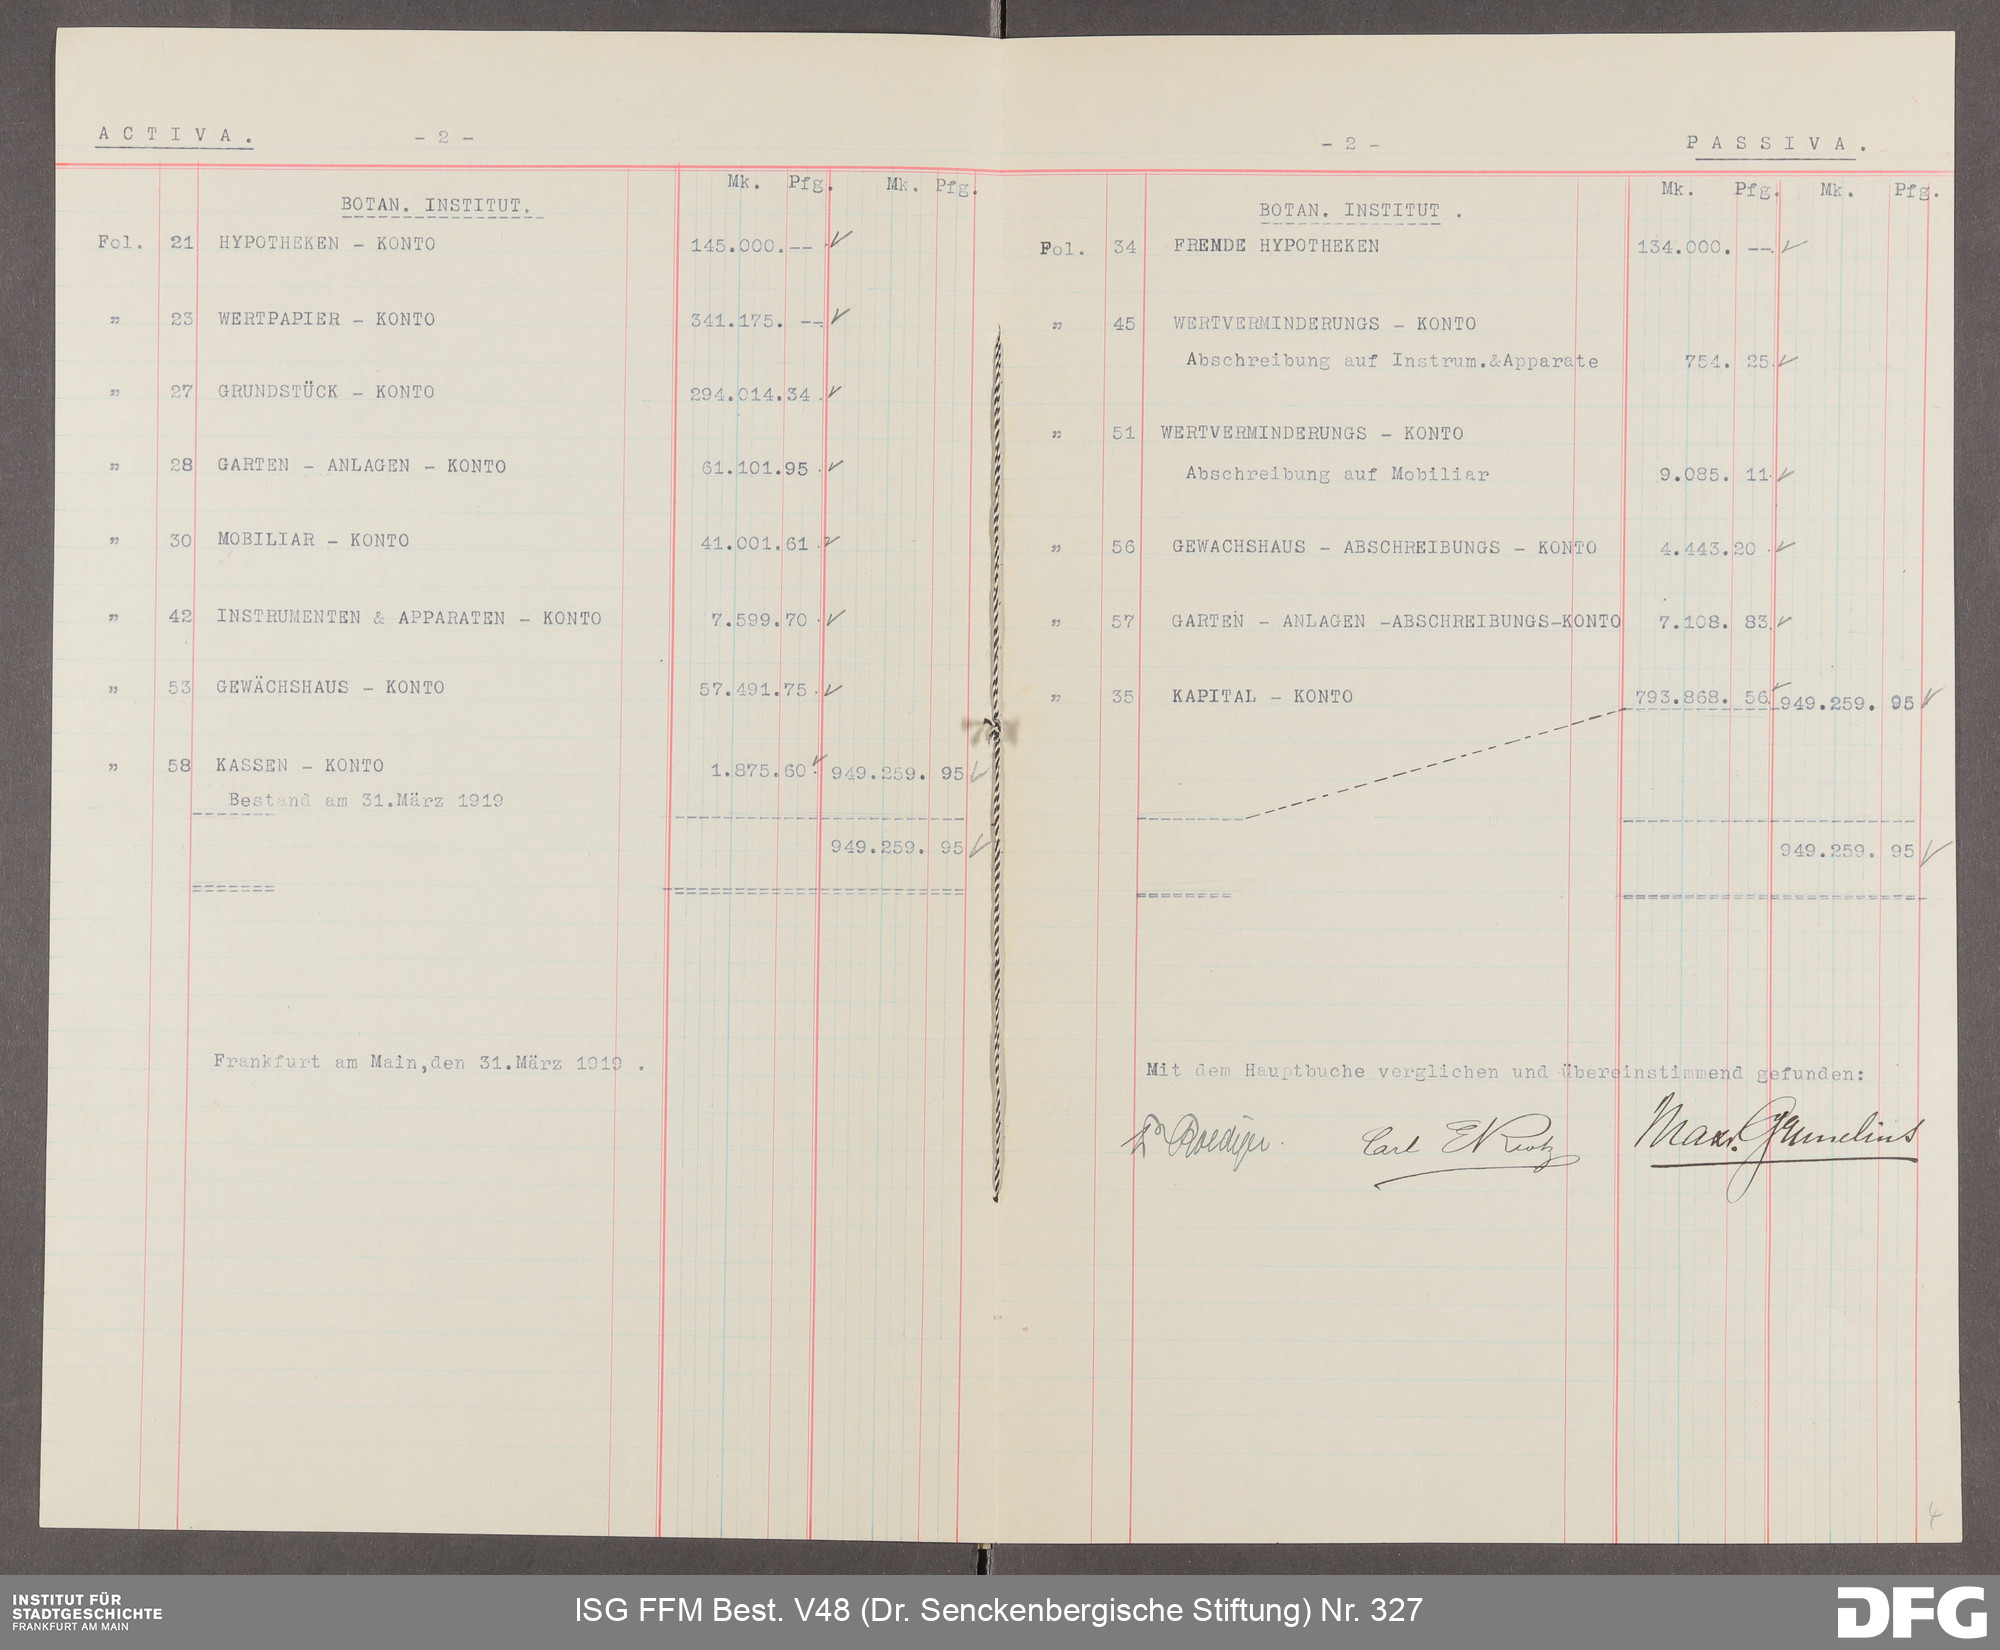 ACTIVA.
- 2 -
Mk. Pfg. Mk. Pfg.
BOTAN. INSTITUT.
Fol. 21 HYPOTHEKEN - KONTO 145.000.--
" 23 WERTPAPIER - KONTO 341.175. --
" 27 GRUNDSTÜCK - KONTO 294.014.34
" 28 GARTEN - ANLAGEN - KONTO 61.101.95
" 30 MOBILIAR - KONTO 41.001.61
" 42 INSTRUMENTEN & APPARATEN - KONTO 7.599.70
" 53 GEWÄCHSHAUS - KONTO 57.491.75
" 58 KASSEN - KONTO 1.875.60 949.259. 95
Bestand am 31.März 1919
949.259. 95
Frankfurt am Main,den 31.März 1919 .
- 2 -
PASSIVA.
Mk. Pfg. Mk. Pfg.
BOTAN. INSTITUT .
Fol. 34 FREMDE HYPOTHEKEN 134.000. --
" 45 WERTVERMINDERUNGS - KONTO
Abschreibung auf Instrum.&Apparate 754. 25
" 51 WERTVERMINDERUNGS - KONTO
Abschreibung auf Mobiliar 9.085. 11
" 56 GEWACHSHAUS - ABSCHREIBUNGS - KONTO 4.443.20
" 57 GARTEN - ANLAGEN -ABSCHREIBUNGS-KONTO 7.108. 83
" 35 KAPITAL - KONTO 793.868. 56 949.259. 95
949.259. 95
Mit dem Hauptbuche verglichen und übereinstimmend gefunden:
Dr Roediger. Carl Max v. Grunelius
4
INSTITUT FÜR
STADTGESCHICHTE
FRANKFURT AM MAIN
ISG FFM Best. V48 (Dr. Senckenbergische Stiftung) Nr. 327
DFG